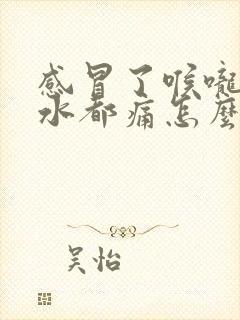 感冒了喉嚨
水都痛怎麼
吴怡